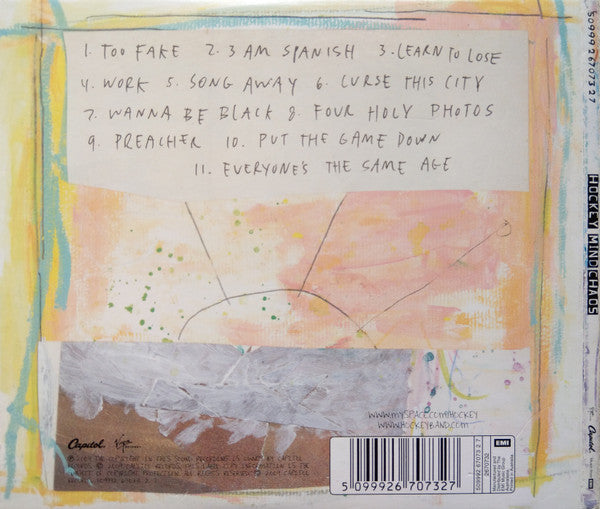 1. TOO FAKE 2. 3 AM SPANISH 3. LEARN TO LOSE
4. WORK 5. SONG AWAY 6. CURSE THIS CITY
7. WANNA BE BLACK 8. FOUR HOLY PHOTOS
9. PREACHER 10. PUT THE GAME DOWN
11. EVERYONE'S THE SAME AGE
50999 2 67073 2 7
HOCKEY MIND CHAOS
Capitol
www.myspace.com/hockey
www.hockeyband.com
Capitol Virgin
5 099926 707327
50999 2 67073 2 7
2670732
EMI